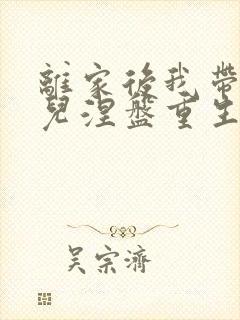 離家後我帶
兒涅盤重生
吴宗濟